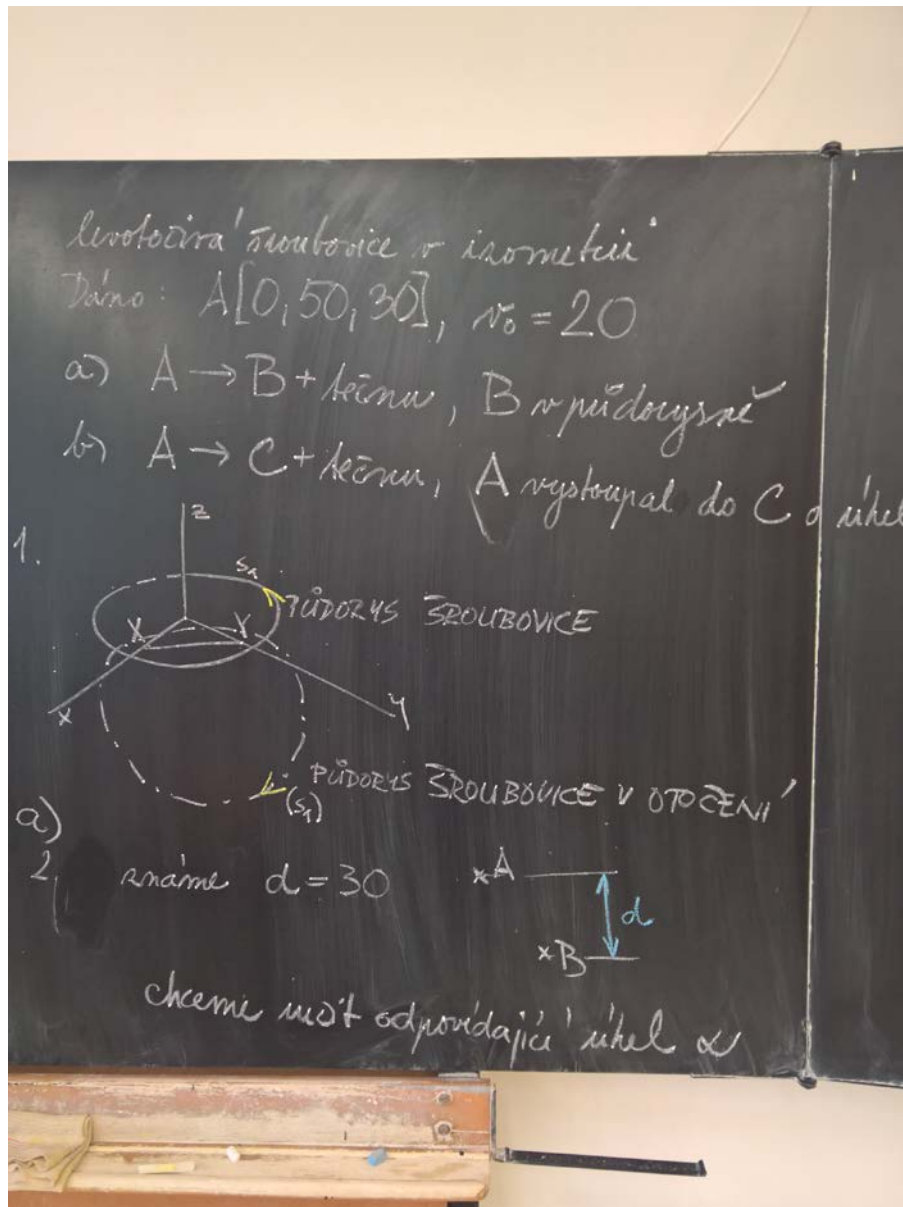 levotočivá šroubovice v izometrii
Dáno: A[0,50,30], v₀ = 20
a) A → B + tečnu, B v půdorysně
b) A → C + tečnu, A vystoupal do C o úhel
1.
z
s₁
PŮDORYS ŠROUBOVICE
X Y
x y
PŮDORYS ŠROUBOVICE V OTOČENÍ
(s₁)
a)
2. známe d = 30
×A
d
×B
chceme určit odpovídající úhel α